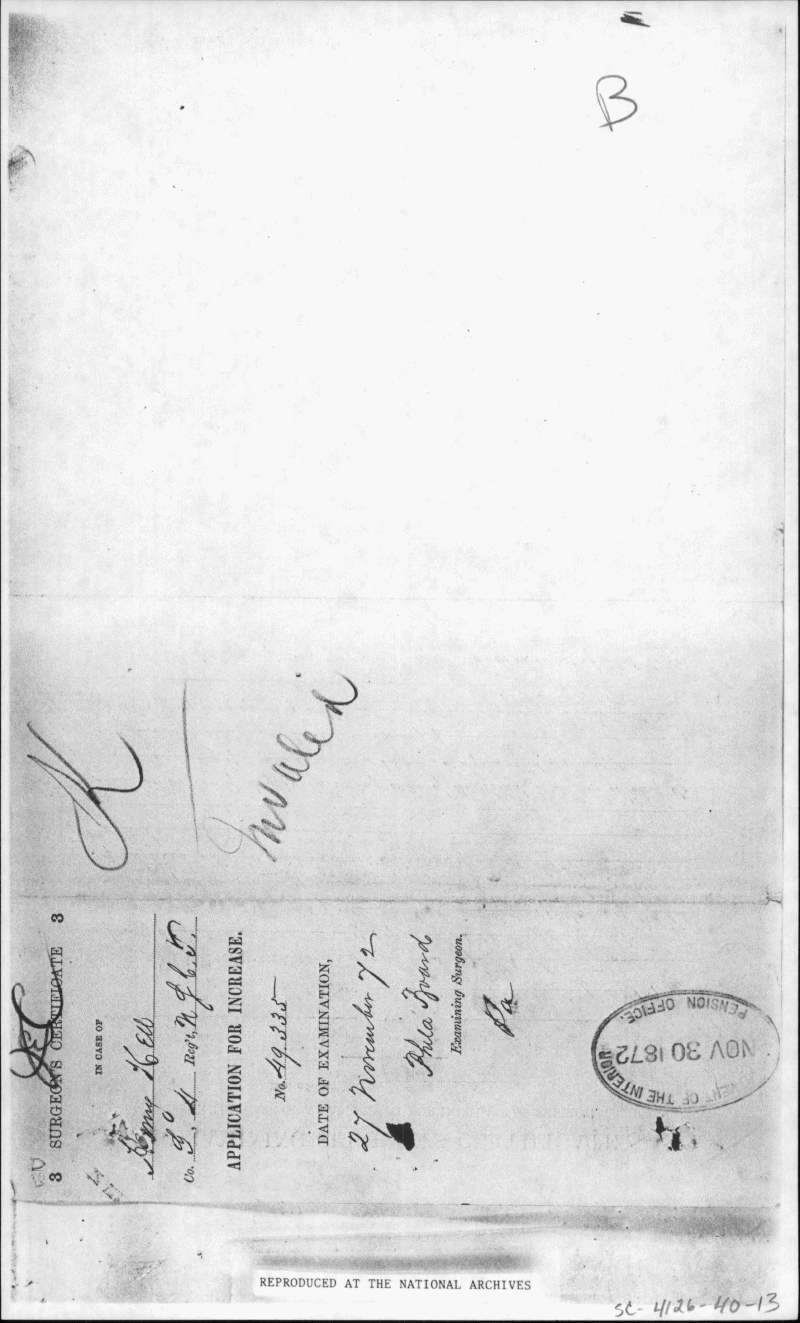 B
K
Invalid
3 SURGEON'S CERTIFICATE 3
IN CASE OF
Kell
Co. Reg't,
APPLICATION FOR INCREASE.
No. 49.335
DATE OF EXAMINATION,
27 November 72
Phila Board
Examining Surgeon.
Pa
PENSION OFFICE.
NOV 30 1872
OF THE INTERIOR
REPRODUCED AT THE NATIONAL ARCHIVES
SC- 4126-40-13